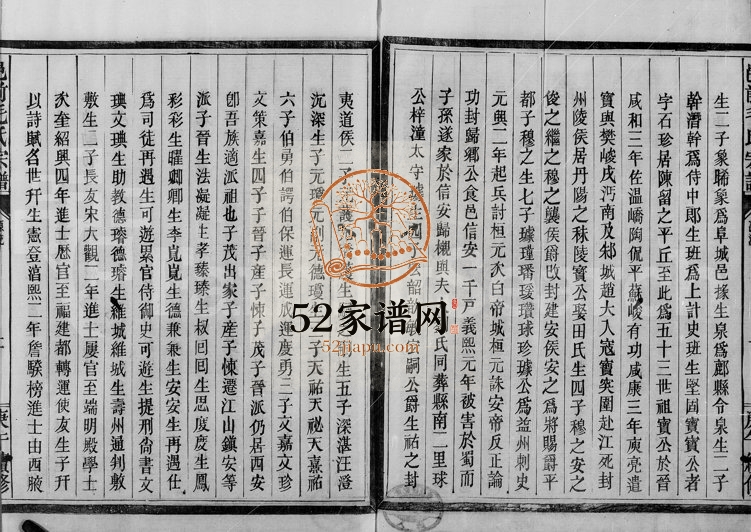 生二子象晞象爲阜城邑掾生泉爲鄮縣令泉生二子
幹潛幹爲侍中郎生班爲上計史班生堅固寶寶公者
字石珍居陳留之平丘至此爲五十三世祖寶公於晉
咸和三年佐溫嶠陶侃平蘇峻有功咸康三年庾亮遣
寶與樊峻戍沔南及邾城趙大入寇寶突圍赴江死封
州陵侯居丹陽之秣陵寶公娶田氏生四子穆之安之
俊之繼之穆之襲侯爵改封建安侯安之爲將賜爵平
都子穆之生七子璩瑾璠瑗瓚球珍璩公爲益州刺史
元興二年起兵討桓元次白帝城桓元誅安帝反正論
功封歸鄉公食邑信安一千戶義熙元年被害於蜀而
子孫遂家於信安歸櫬與夫 氏同葬縣南二里球
公梓潼太守 嗣公爵生祐之封
夷道侯 生五子深湛汪澄
沉深生子元 元 元德 子天祐天祕天嘉祐
六子伯勇伯諤伯保運長運成運度勇二子文嘉文珍
文策嘉生四子子晉子産子悚子茂子晉派仍居西安
卽吾族適派祖也子茂出家子産子悚遷江山鎮安等
派子晉生法凝凝生孝蓁蓁生叔回回生思度度生鳳
彩彩生曜卿卿生李崑崑生德兼兼生安安生再遇仕
爲司徒再遇生可遊累官侍御史可遊生提刑尙書文
璵文璵生助教德璿德璿生維城維城生壽州通判敷
敷生二子長友宋大觀二年進士屢官至端明殿學士
次奎紹興四年進士歷官至福建都轉運使友生子幵
以詩賦名世幵生憲登淳熙二年詹騤榜進士由西腋
毛氏宗譜
52家谱网
www.52jiapu.com
庚午續修